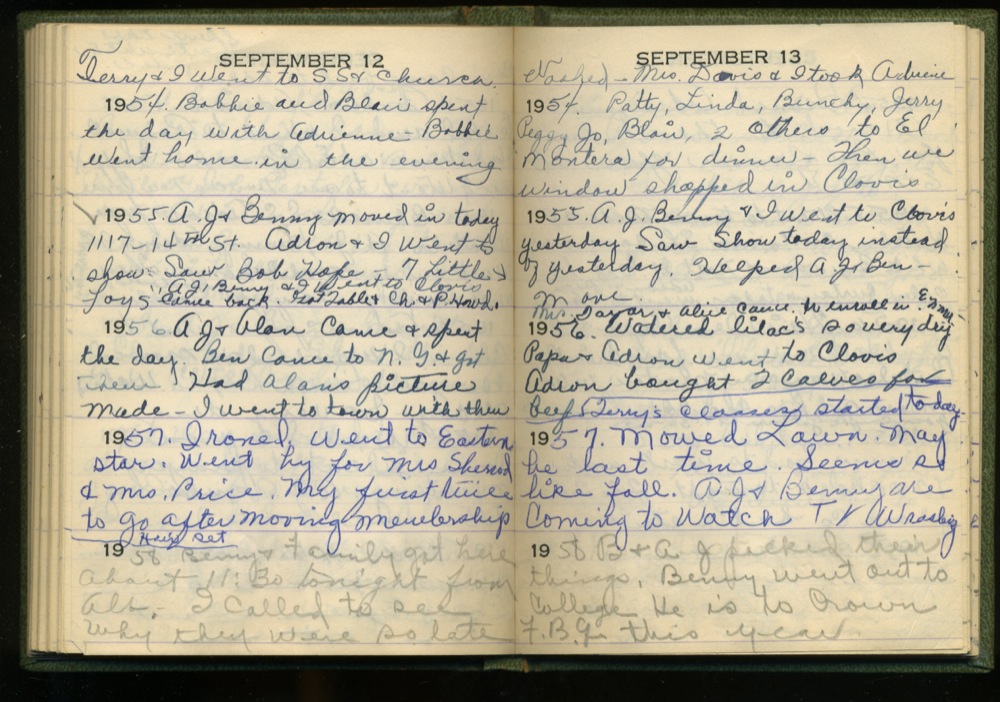 SEPTEMBER 12
Terry & I went to S S & Church.
1954. Bobbie and Blair spent
the day with Adrienne - Bobbie
went home in the evening
1955. A.J & Benny moved in today
1117-14th St. Adron & I went to
show: Saw Bob Hope - 7 Little
Foys" A.J, Benny & I went to Clovis
came back. Got Table & Ch. & P.
1956 A J & Alan Came & spent
the day. Ben came to N. G & got
them Had Alan's picture
made - I went to town with them
1957. Ironed, Went to Eastern
star. Went by for Mrs
& Mrs. Price. My first time
to go after moving membership
Hair set
1958 Benny & family got here
about 11:30 tonight from
Alb, - I called to see
why they were so late
SEPTEMBER 13
Washed - Mrs. Davis & I took Adriene
1954. Patty, Linda, Bunchy, Jerry
Peggy Jo, Blair, 2 others to El
Montera for dinner - Then we
window shopped in Clovis
1955. A.J. Benny & I went to Clovis
yesterday Saw Show today instead
of yesterday. Helped A J & Ben -
Move
Mrs. & Alice came. to enroll in E.N.M.U.
1956. Watered lilac's so very dry
Papa & Adron went to Clovis
Adron bought 2 calves for
beef Terry's classes started today.
1957. Mowed Lawn. May
be last time. Seems so
like fall. A J & Benny are
Coming to Watch T V
1958 B & A J picked their
things, Benny went out to
College He is to Crown
F.B.Q. this year.